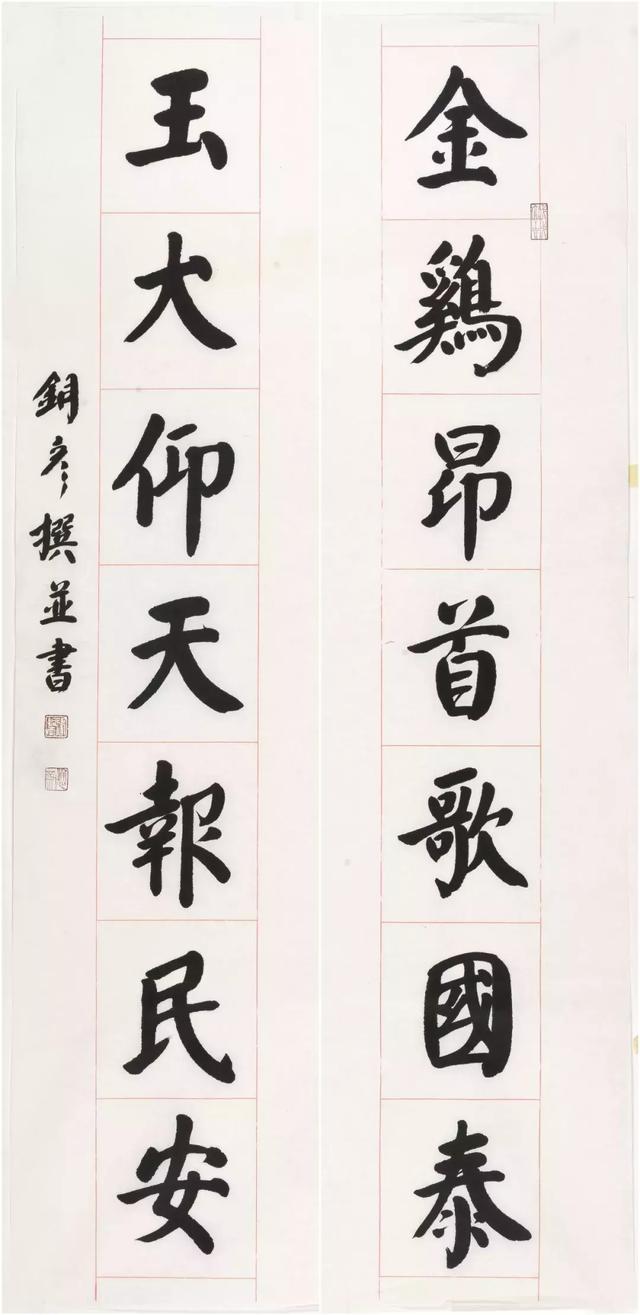 金鷄昂首歌國泰
玉犬仰天報民安
彥撰並書